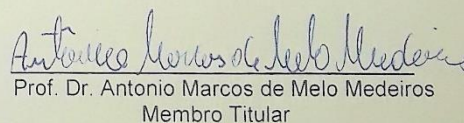 Antonio Marcos de Melo Medeiros
Prof. Dr. Antonio Marcos de Melo Medeiros
Membro Titular